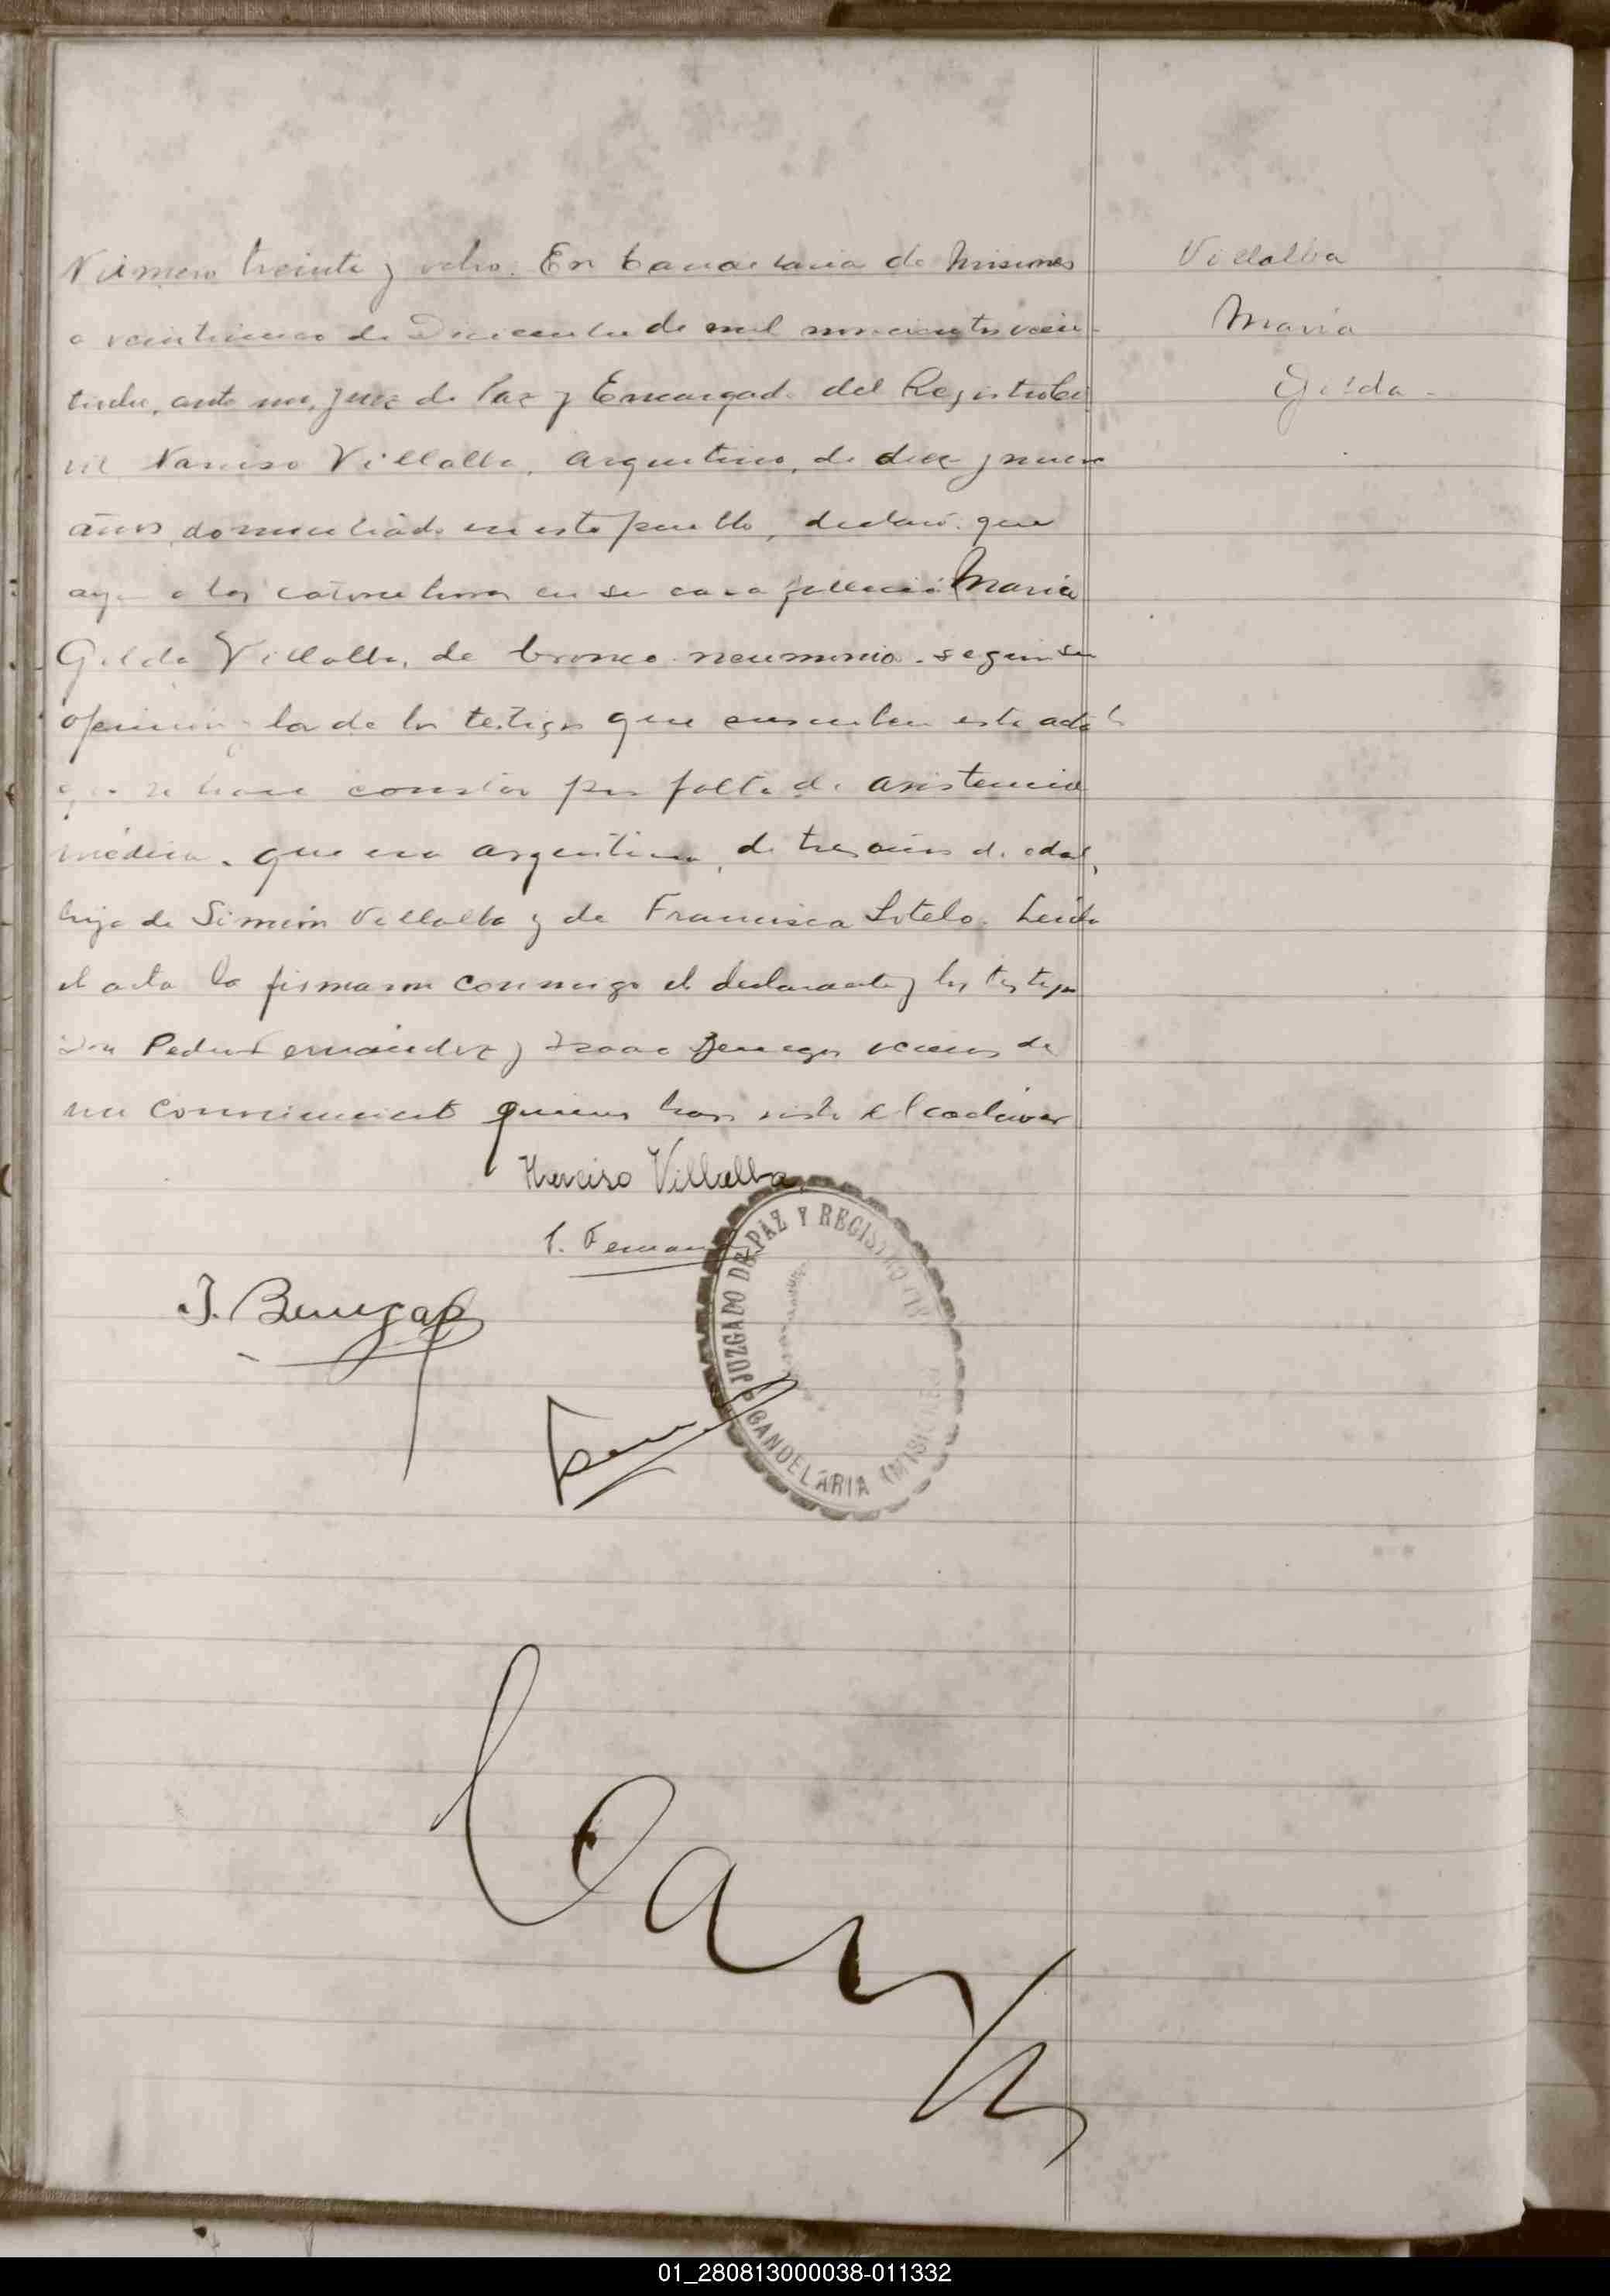 Número treinta y ocho. En Candelaria de Misiones
Villalba
a veinticinco de Diciembre de mil novecientos vein-
Maria
tiocho, ante mi, Juez de Paz y Encargado del Registro Ci
Gilda -
vil Narciso Villalba, argentino, de diez y nueve
años, domiciliado en este pueblo, declaró: que
ayer a las catorce horas en su casa falleció Maria
Gilda Villalba, de bronco neumonia. según su
opinión y la de los testigos que suscriben esta acta lo
que se hace constar por falta de asistencia
médica. que era argentina, de tres años de edad,
hija de Simón Villalba y de Francisca Sotelo. Leida
el acta la firmaron conmigo el declarante y los testigos
Don Pedro Fernández y Isaac Benegas vecinos de
mi conocimiento quienes han visto el cadáver
Narciso Villalba
P. Fernan
J. Benegas
JUZGADO DE PAZ Y REGISTRO CIVIL
CANDELARIA (MISIONES)
01_280813000038-011332